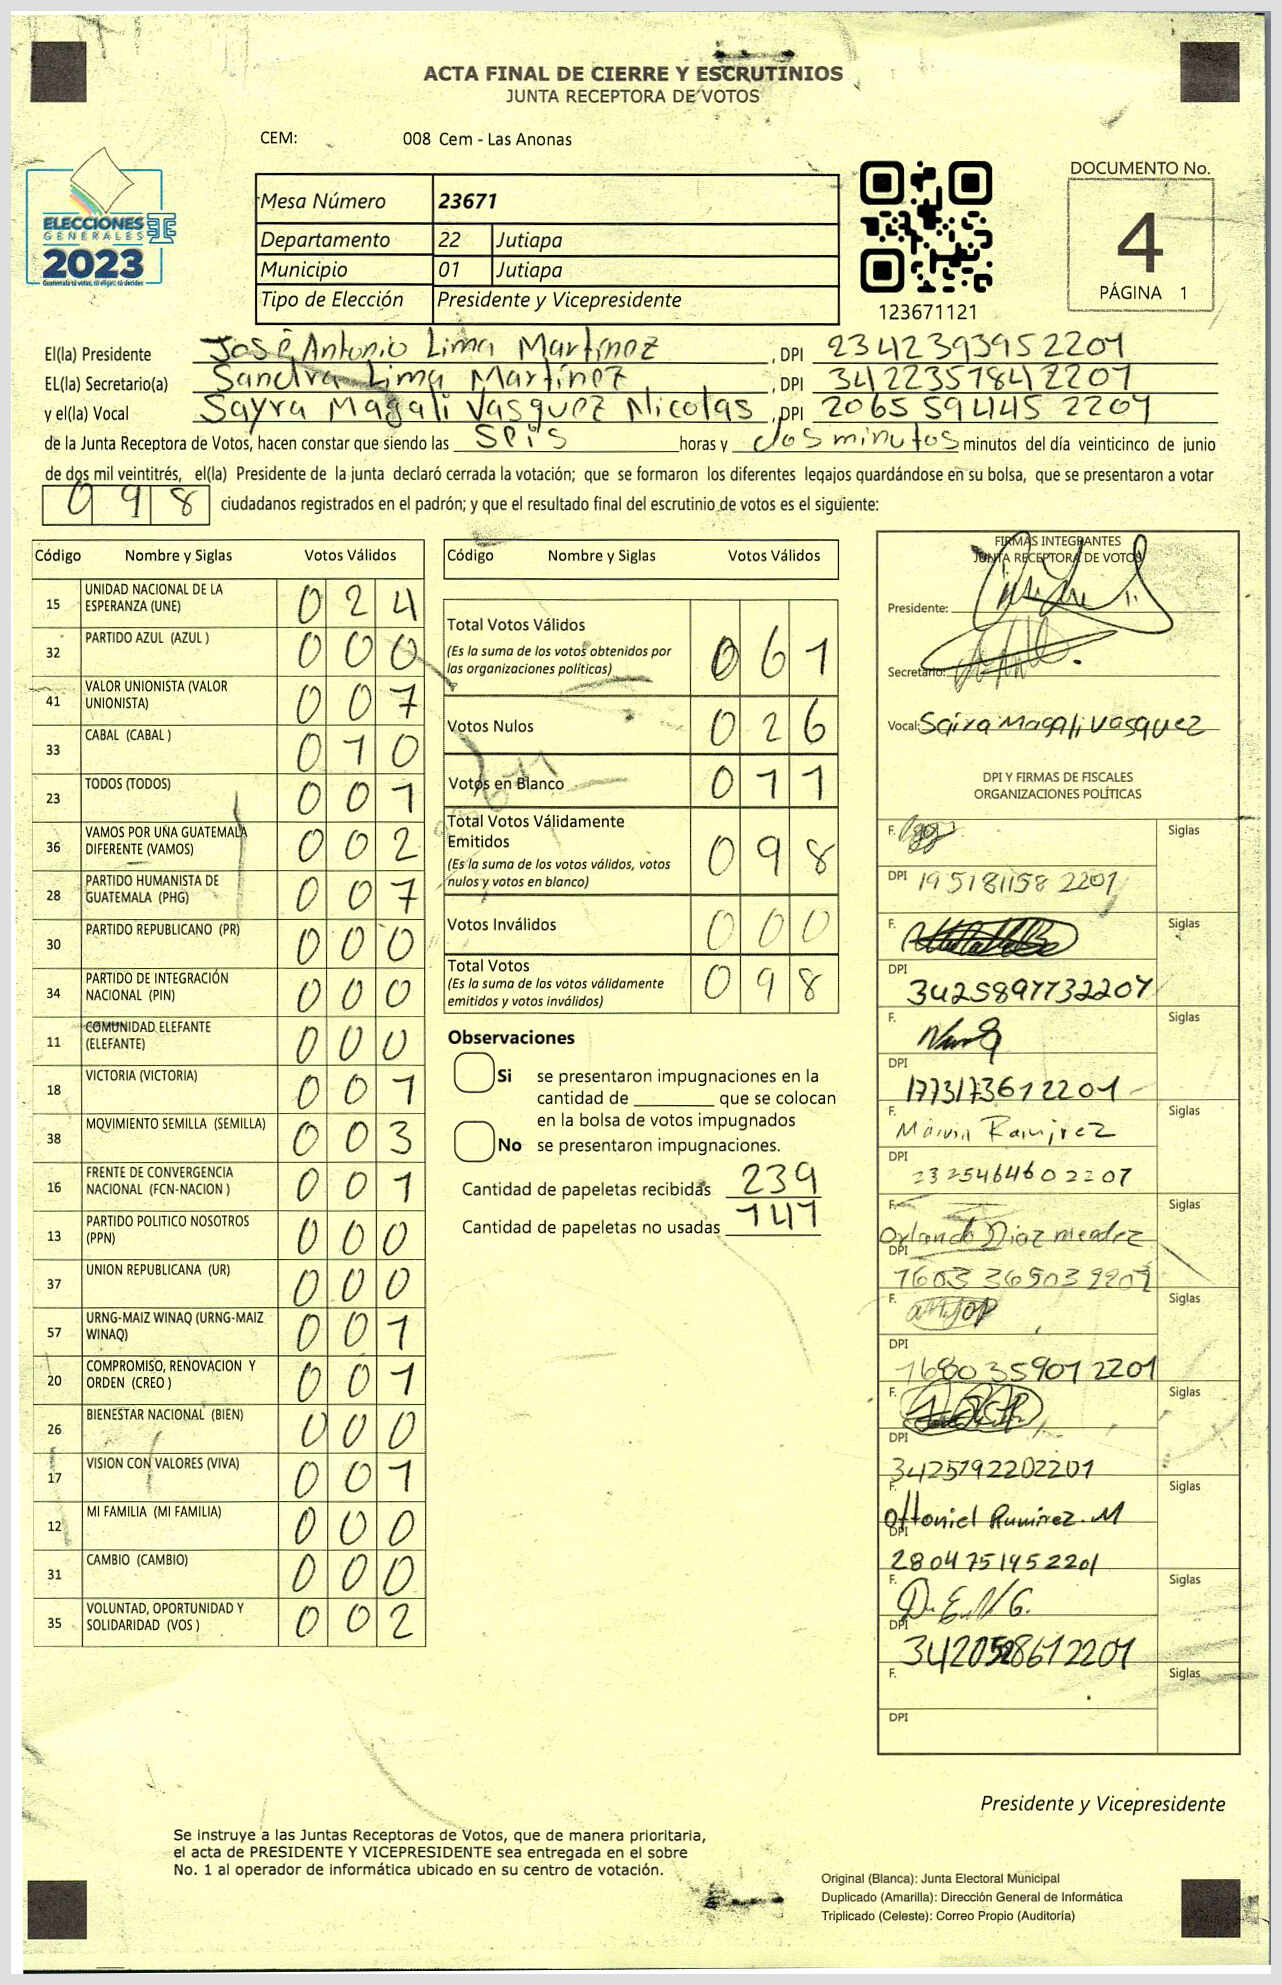 ACTA FINAL DE CIERRE Y ESCRUTINIOS
JUNTA RECEPTORA DE VOTOS
CEM: 008 Cem - Las Anonas
ELECCIONES
GENERALES
2023
Guatemala tú votas, tú eliges, tú decides
Mesa Número 23671
Departamento 22 Jutiapa
Municipio 01 Jutiapa
Tipo de Elección Presidente y Vicepresidente
123671121
DOCUMENTO No.
4
PÁGINA 1
El(la) Presidente José Antonio Lima Martínez , DPI 2342393952201
EL(la) Secretario(a) Sandra Lima Martínez , DPI 3422357842201
y el(la) Vocal Sayra Magali Vasquez Nicolas , DPI 2065594452201
de la Junta Receptora de Votos, hacen constar que siendo las seis horas y dos minutos minutos del día veinticinco de junio
de dos mil veintitrés, el(la) Presidente de la junta declaró cerrada la votación; que se formaron los diferentes legajos guardándose en su bolsa, que se presentaron a votar
098 ciudadanos registrados en el padrón; y que el resultado final del escrutinio de votos es el siguiente:
Código Nombre y Siglas Votos Válidos
15 UNIDAD NACIONAL DE LA ESPERANZA (UNE) 024
32 PARTIDO AZUL (AZUL ) 000
41 VALOR UNIONISTA (VALOR UNIONISTA) 007
33 CABAL (CABAL ) 010
23 TODOS (TODOS) 001
36 VAMOS POR UNA GUATEMALA DIFERENTE (VAMOS) 002
28 PARTIDO HUMANISTA DE GUATEMALA (PHG) 007
30 PARTIDO REPUBLICANO (PR) 000
34 PARTIDO DE INTEGRACIÓN NACIONAL (PIN) 000
11 COMUNIDAD ELEFANTE (ELEFANTE) 000
18 VICTORIA (VICTORIA) 001
38 MOVIMIENTO SEMILLA (SEMILLA) 003
16 FRENTE DE CONVERGENCIA NACIONAL (FCN-NACION ) 001
13 PARTIDO POLITICO NOSOTROS (PPN) 000
37 UNION REPUBLICANA (UR) 000
57 URNG-MAIZ WINAQ (URNG-MAIZ WINAQ) 001
20 COMPROMISO, RENOVACION Y ORDEN (CREO ) 001
26 BIENESTAR NACIONAL (BIEN) 000
17 VISION CON VALORES (VIVA) 001
12 MI FAMILIA (MI FAMILIA) 000
31 CAMBIO (CAMBIO) 000
35 VOLUNTAD, OPORTUNIDAD Y SOLIDARIDAD (VOS ) 002
Código Nombre y Siglas Votos Válidos
Total Votos Válidos 061
(Es la suma de los votos obtenidos por
las organizaciones políticas)
Votos Nulos 026
Votos en Blanco 011
Total Votos Válidamente
Emitidos 098
(Es la suma de los votos válidos, votos
nulos y votos en blanco)
Votos Inválidos 000
Total Votos 098
(Es la suma de los votos válidamente
emitidos y votos inválidos)
Observaciones
Si se presentaron impugnaciones en la
cantidad de ________ que se colocan
en la bolsa de votos impugnados
No se presentaron impugnaciones.
Cantidad de papeletas recibidas 239
Cantidad de papeletas no usadas 141
FIRMAS INTEGRANTES
JUNTA RECEPTORA DE VOTOS
Presidente:
Secretario:
Vocal: Saira Magali Vasquez
DPI Y FIRMAS DE FISCALES
ORGANIZACIONES POLÍTICAS
F. Siglas
DPI 1951811582201
F. Siglas
DPI 3425897732201
F. Siglas
DPI 1773173612201
F. Marvin Ramirez Siglas
DPI 2325464602207
F. Orlando Diaz mendez Siglas
DPI
F. Siglas
DPI 1680359012201
F. Siglas
DPI 3425792202201
F. Ottoniel Ramirez. M Siglas
DPI 2804751452201
F. Siglas
DPI
F. Siglas
DPI
Presidente y Vicepresidente
Se instruye a las Juntas Receptoras de Votos, que de manera prioritaria,
el acta de PRESIDENTE Y VICEPRESIDENTE sea entregada en el sobre
No. 1 al operador de informática ubicado en su centro de votación.
Original (Blanca): Junta Electoral Municipal
Duplicado (Amarilla): Dirección General de Informática
Triplicado (Celeste): Correo Propio (Auditoría)